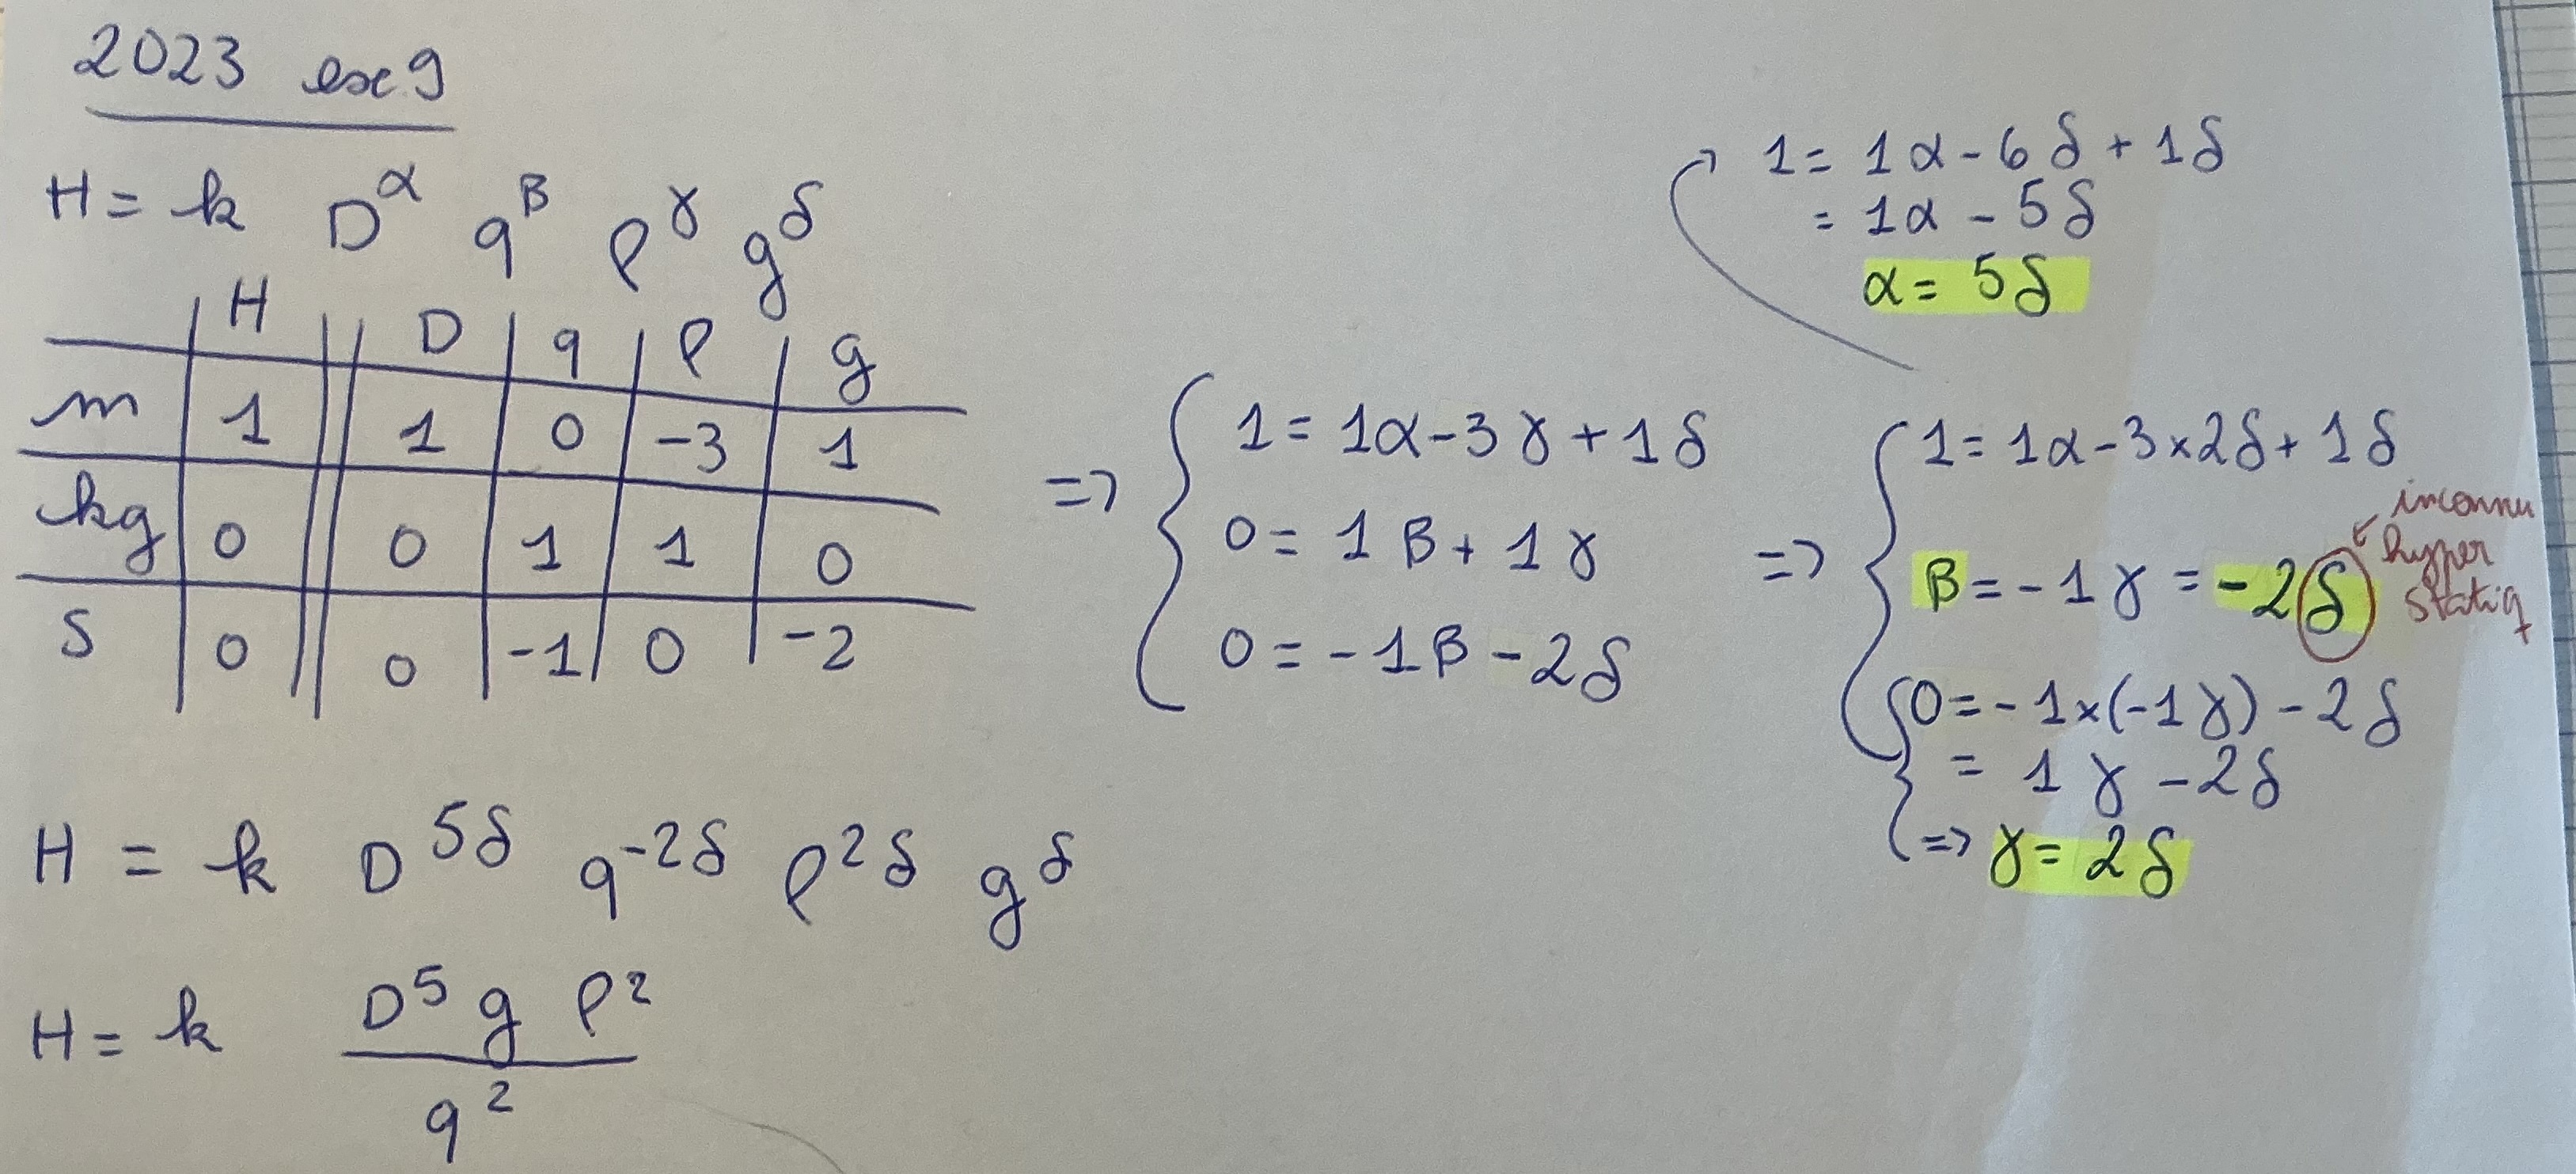 2023 exc 9
H = k D^α q^β ρ^γ g^δ
H D q ρ g
m 1 1 0 -3 1
kg 0 0 1 1 0
s 0 0 -1 0 -2
=> { 1 = 1α - 3γ + 1δ
0 = 1β + 1γ
0 = -1β - 2δ
=> { 1 = 1α - 3×2δ + 1δ
β = -1γ = -2δ
inconnu
hyper
statiq
0 = -1×(-1γ) - 2δ
= 1γ - 2δ
=> γ = 2δ
1 = 1α - 6δ + 1δ
= 1α - 5δ
α = 5δ
H = k D^5δ q^-2δ ρ^2δ g^δ
H = k D^5 g ρ^2
q^2